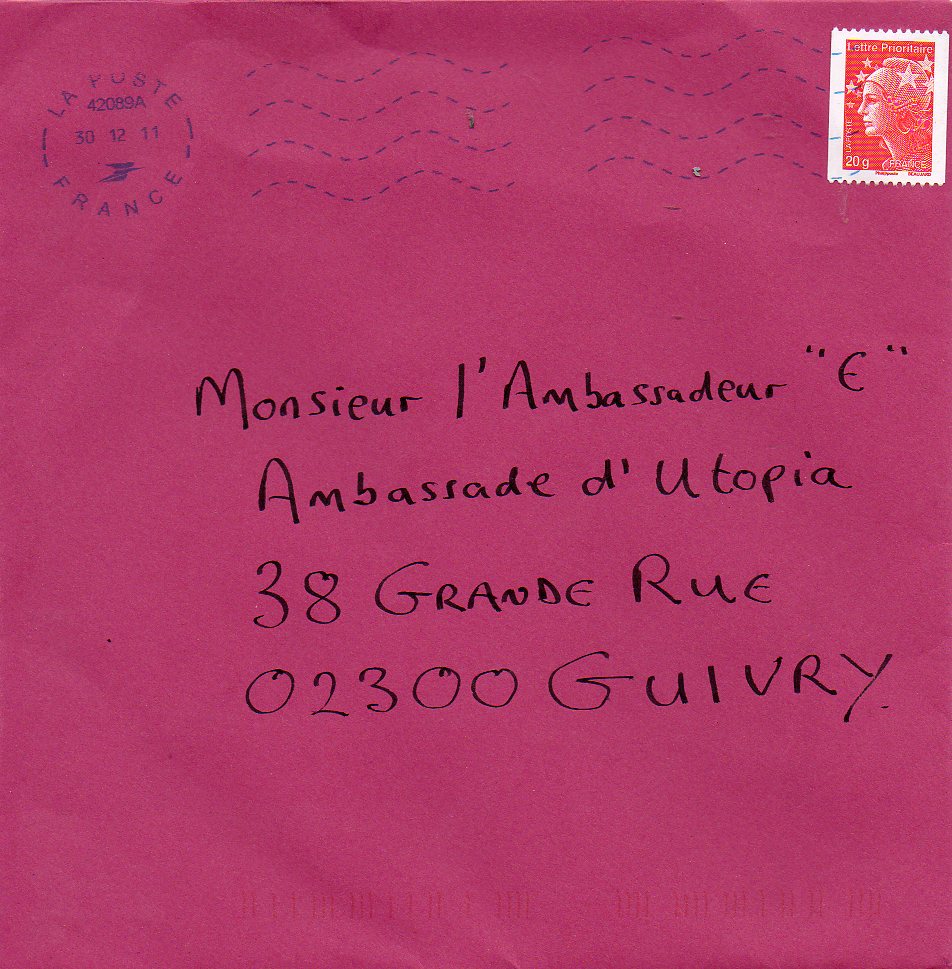 LA POSTE
42089A
30 12 11
FRANCE
Lettre Prioritaire
LA POSTE
20 g FRANCE
Phil@poste BEAUJARD
Monsieur l'Ambassadeur "E"
Ambassade d'Utopia
38 GRANDE RUE
02300 GUIVRY.